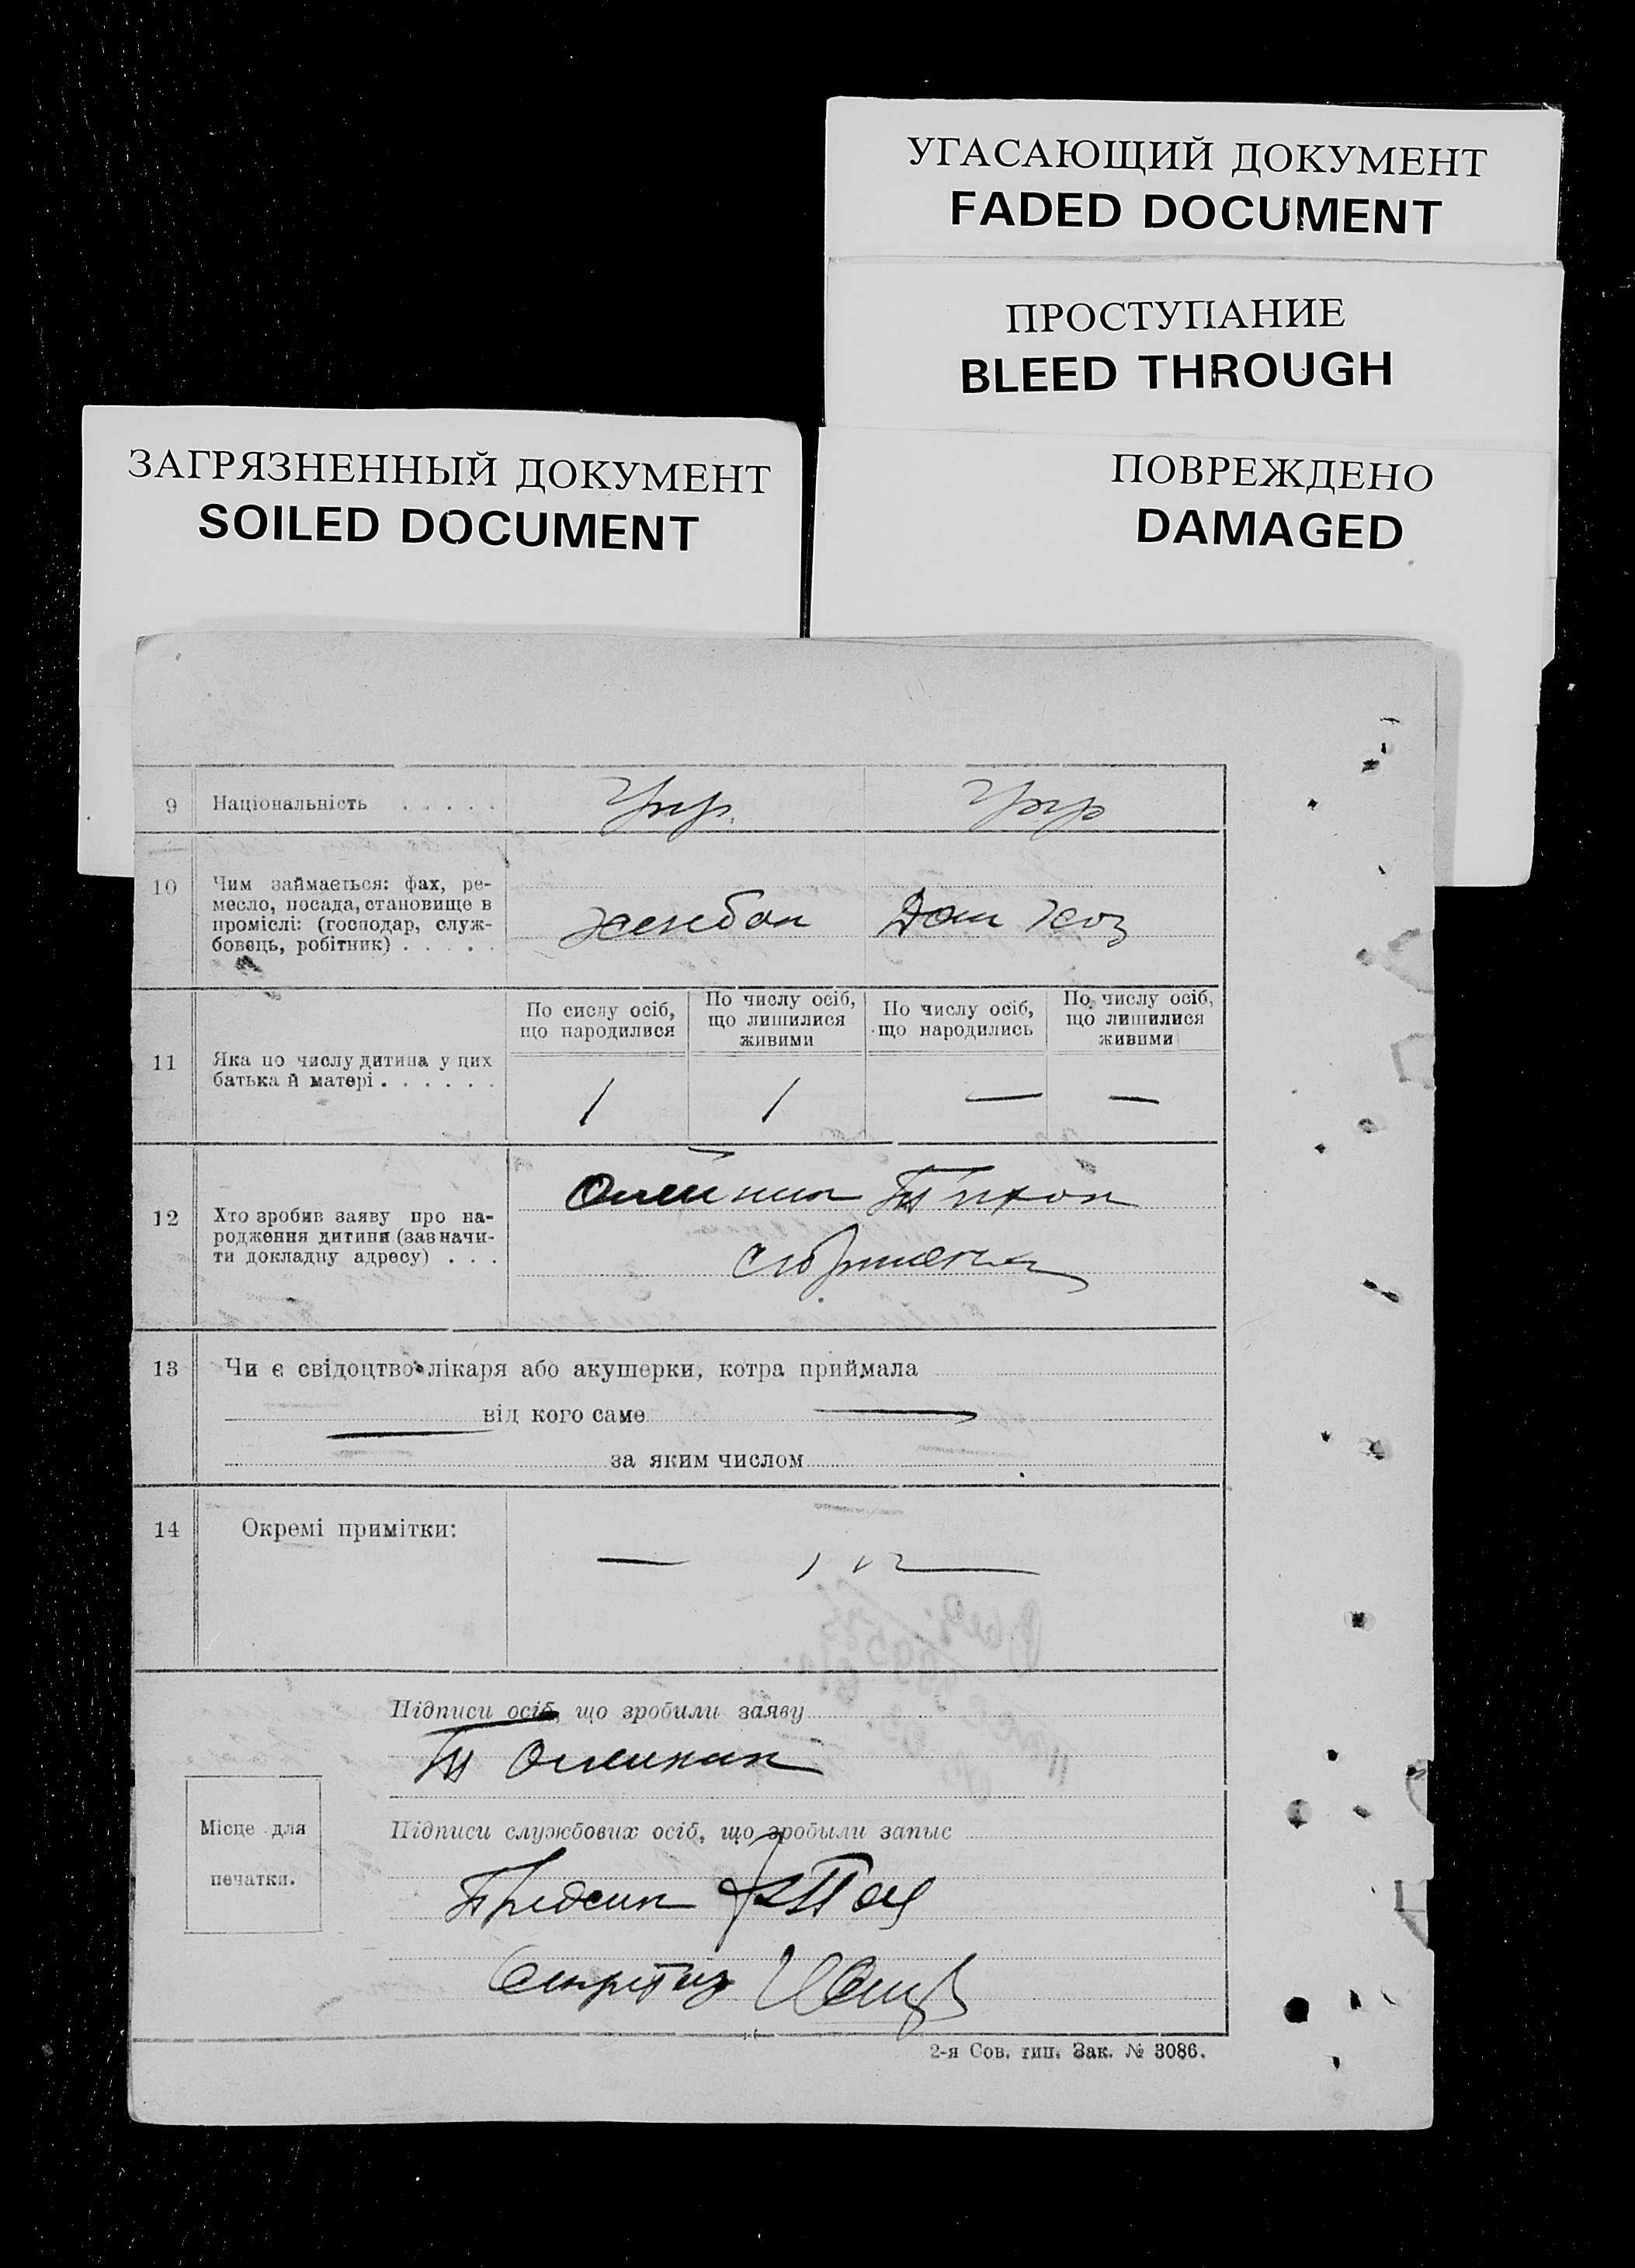 УГАСАЮЩИЙ ДОКУМЕНТ
FADED DOCUMENT
ПРОСТУПАНИЕ
BLEED THROUGH
ЗАГРЯЗНЕННЫЙ ДОКУМЕНТ
SOILED DOCUMENT
ПОВРЕЖДЕНО
DAMAGED
9 Національність . . . . . Укр. Укр
10 Чим займається: фах, ре-
месло, посада, становище в
проміслі: (господар, служ-
бовець, робітник) . . . . .
хлебоп Дом хоз
11 Яка по числу дитина у цих
батька й матері . . . . . .
По сислу осіб,
що народилися
По числу осіб,
що лишилися
живими
По числу осіб,
що народились
По числу осіб,
що лишилися
живими
1 1 — —
12 Хто зробив заяву про на-
родження дитини (зазначи-
ти докладну адресу) . . .
Олейник Тихон
13 Чи є свідоцтво лікаря або акушерки, котра приймала
від кого саме
за яким числом
14 Окремі примітки:
Підписи осіб, що зробили заяву
Т Олейник
Місце для
печатки.
Підписи службових осіб, що зробыли запыс
Предсик
Секретар
2-я Сов. тип. Зак. № 3086.